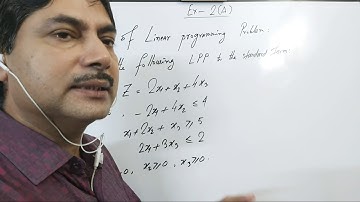 Ex-2(A)
of Linear programming Problem:
the following LPP to the standard form:
Z = 2x₁ + x₂ + 4x₃
- 2x₁ + 4x₂ ≤ 4
x₁ + 2x₂ + x₃ ≥ 5
2x₁ + 3x₃ ≤ 2
0, x₂ ≥ 0, x₃ ≥ 0.